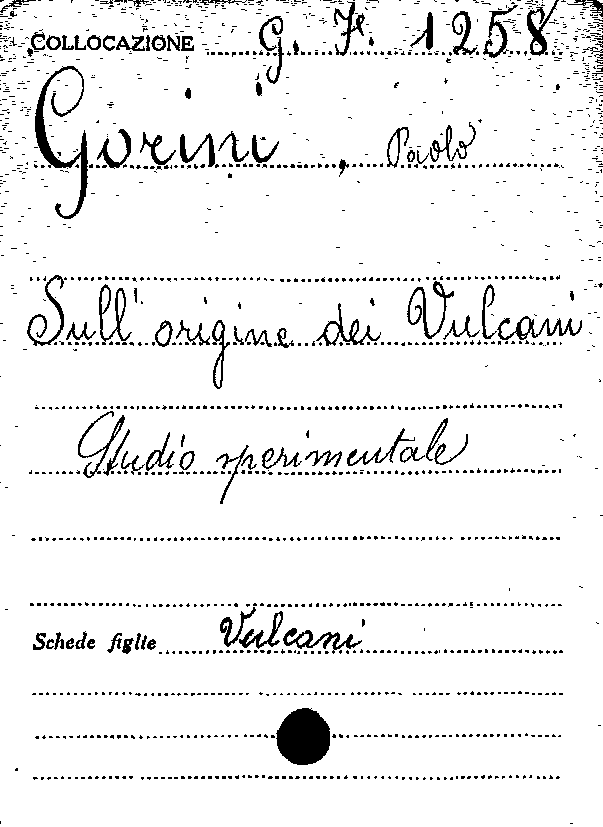 COLLOCAZIONE G. F. 1258
Gorini, Paolo
Sull'origine dei Vulcani
Studio sperimentale
Schede figlie Vulcani